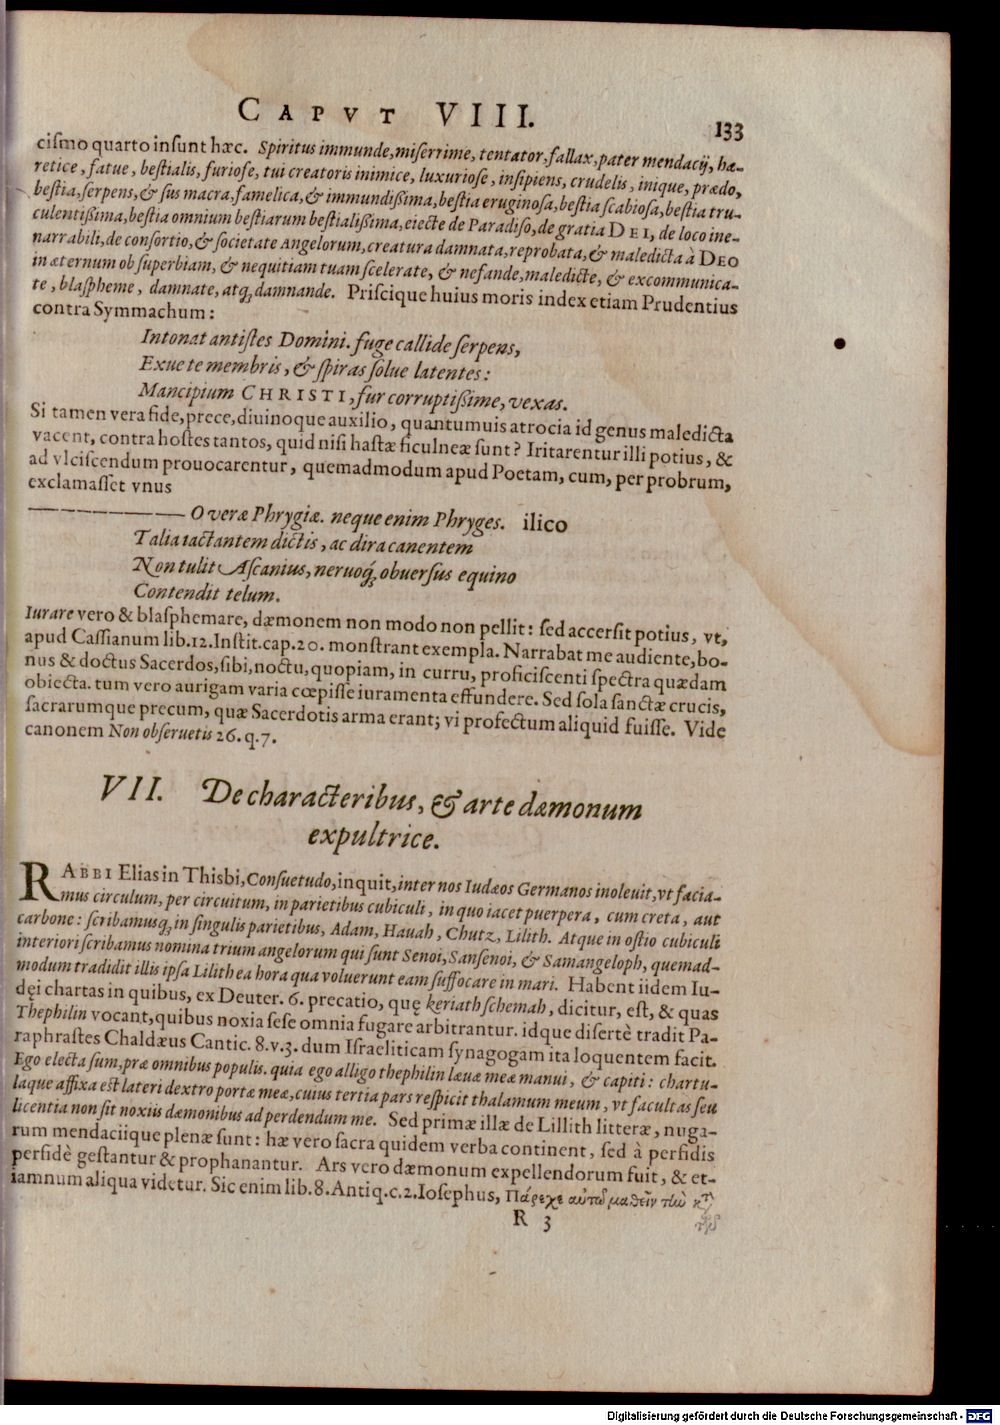 CAPVT VIII.
133
cismo quarto insunt hæc. Spiritus immunde, miserrime, tentator, fallax, pater mendacij, hæ-
retice, fatue, bestialis, furiose, tui creatoris inimice, luxuriose, insipiens, crudelis, inique, prædo,
bestia, serpens, & sus macra, famelica, & immundißima, bestia eruginosa, bestia scabiosa, bestia tru-
culentißima, bestia omnium bestiarum bestialißima, eiecte de Paradiso, de gratia DEI, de loco ine-
narrabili, de consortio, & societate Angelorum, creatura damnata, reprobata, & maledicta à DEO
in æternum ob superbiam, & nequitiam tuam scelerate, & nefande, maledicte, & excommunica-
te, blaspheme, damnate, atq; damnande. Priscique huius moris index etiam Prudentius
contra Symmachum:
Intonat antistes Domini. fuge callide serpens,
Exue te membris, & spiras solue latentes:
Mancipium CHRISTI, fur corruptißime, vexas.
Si tamen vera fide, prece, diuinoque auxilio, quantumuis atrocia id genus maledicta
vacent, contra hostes tantos, quid nisi hastæ ficulneæ sunt? Iritarentur illi potius, &
ad vlciscendum prouocarentur, quemadmodum apud Poetam, cum, per probrum,
exclamasset vnus
—————— O veræ Phrygiæ. neque enim Phryges. ilico
Talia iactantem dictis, ac dira canentem
Non tulit Ascanius, neruoq́; obuersus equino
Contendit telum.
Iurare vero & blasphemare, dæmonem non modo non pellit: sed accersit potius, vt,
apud Cassianum lib.12.Instit.cap.20. monstrant exempla. Narrabat me audiente, bo-
nus & doctus Sacerdos, sibi, noctu, quopiam, in curru, proficiscenti spectra quædam
obiecta. tum vero aurigam varia cœpisse iuramenta effundere. Sed sola sanctæ crucis,
sacrarumque precum, quæ Sacerdotis arma erant; vi profectum aliquid fuisse. Vide
canonem Non obseruetis 26. q.7.
VII. De characteribus, & arte dæmonum
expultrice.
RABBI Elias in Thisbi, Consuetudo, inquit, inter nos Iudæos Germanos inoleuit, vt facia-
mus circulum, per circuitum, in parietibus cubiculi, in quo iacet puerpera, cum creta, aut
carbone: scribamusq; in singulis parietibus, Adam, Hauah, Chutz, Lilith. Atque in ostio cubiculi
interiori scribamus nomina trium angelorum qui sunt Senoi, Sansenoi, & Samangeloph, quemad-
modum tradidit illis ipsa Lilith ea hora qua voluerunt eam suffocare in mari. Habent iidem Iu-
dęi chartas in quibus, ex Deuter. 6. precatio, quę keriath schemah, dicitur, est, & quas
Thephilin vocant, quibus noxia sese omnia fugare arbitrantur. idque disertè tradit Pa-
raphrastes Chaldæus Cantic. 8.v.3. dum Israeliticam synagogam ita loquentem facit.
Ego electa sum, præ omnibus populis. quia ego alligo thephilin læuæ meæ manui, & capiti: chartu-
laque affixa est lateri dextro portæ meæ, cuius tertia pars respicit thalamum meum, vt facultas seu
licentia non sit noxiis dæmonibus ad perdendum me. Sed primæ illæ de Lillith litteræ, nuga-
rum mendaciique plenæ sunt: hæ vero sacra quidem verba continent, sed à perfidis
perfidè gestantur & prophanantur. Ars vero dæmonum expellendorum fuit, & et-
iamnum aliqua videtur. Sic enim lib.8.Antiq.c.2.Iosephus, Πάρεχε αὐτῷ μαθεῖν τὴν κτ̀
R 3